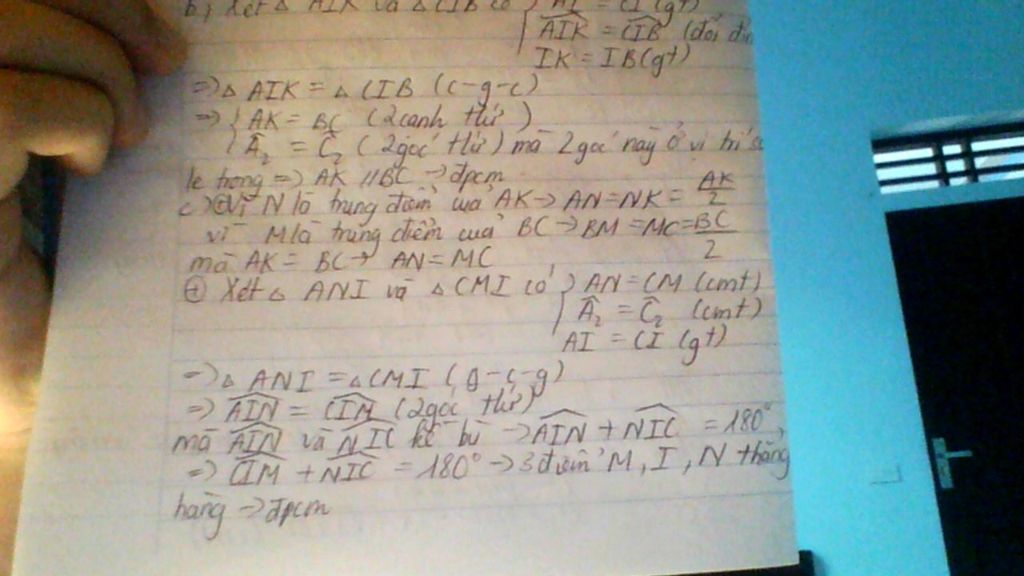 b) Xét △ AIK và △ CIB có } AI = CI (gt)
AIK = CIB (đối đỉ
IK = IB (gt)
=> △ AIK = △ CIB (c-g-c)
=> { AK = BC (2 cạnh t/ứ)
Â₂ = Ĉ₂ (2 góc t/ứ) mà 2 góc này ở vị trí so
le trong => AK // BC -> đpcm
c) ⊕ Vì N là trung điểm của AK -> AN = NK = AK/2
vì M là trung điểm của BC -> BM = MC = BC/2
mà AK = BC -> AN = MC
⊕ Xét △ ANI và △ CMI có } AN = CM (cmt)
Â₂ = Ĉ₂ (cmt)
AI = CI (gt)
=> △ ANI = △ CMI (g-c-g)
=> AIN = CIM (2 góc t/ứ)
mà AIN và NIC kề bù -> AIN + NIC = 180°
=> CIM + NIC = 180° -> 3 điểm M, I, N thẳng
hàng -> đpcm